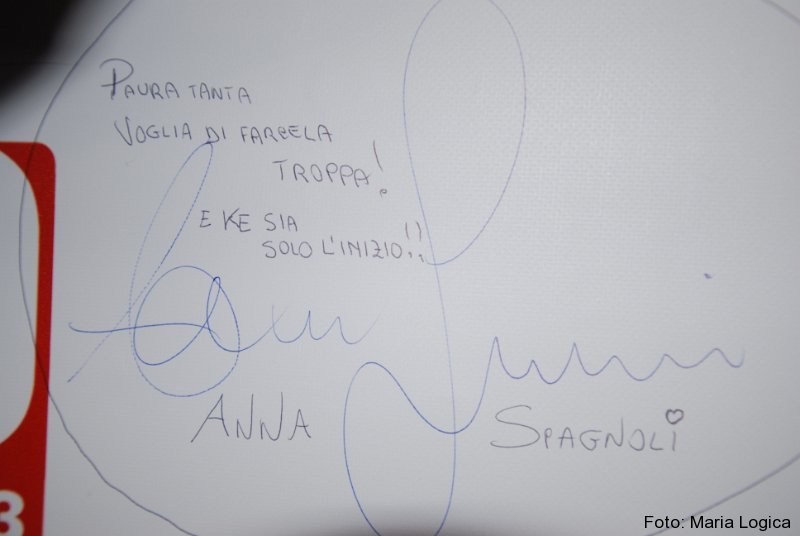 PAURA TANTA
VOGLIA DI FARCELA
TROPPA!
E KE SIA
SOLO L'INIZIO!!
ANNA SPAGNOLI
3
Foto: Maria Logica